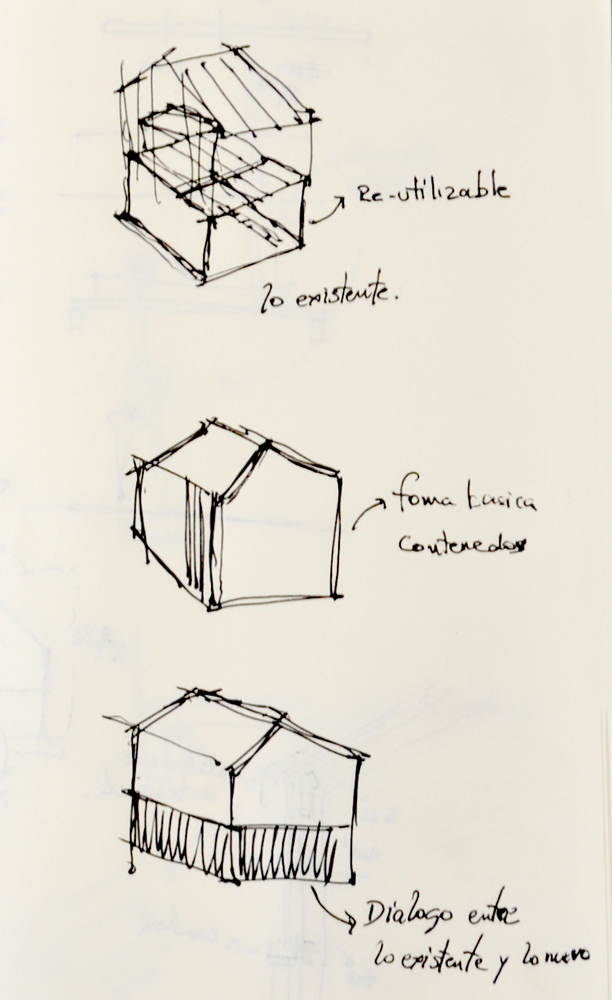 Re-utilizable
lo existente.
foma basica
contenedor
Dialogo entre
lo existente y lo nuevo